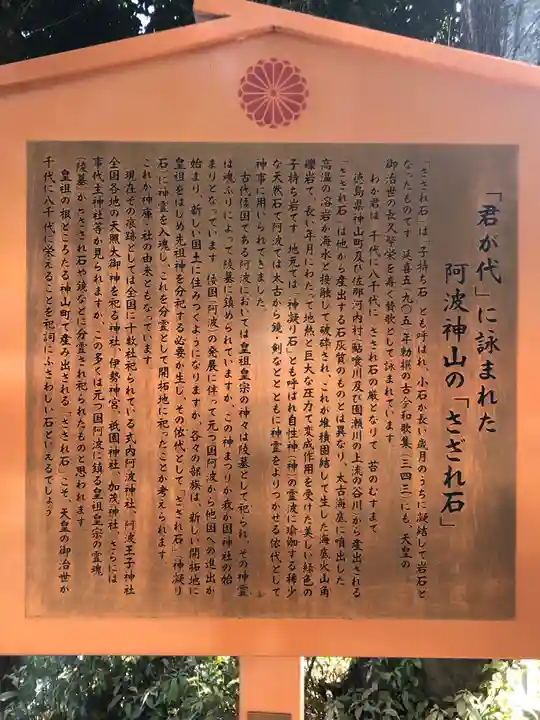 「君が代」に詠まれた
阿波神山の「さざれ石」
「さざれ石」は「子持ち石」とも呼ばれ、小石が長い歳月のうちに凝結して岩石と
なったものです 延喜五(九〇五)年勅撰の古今和歌集(三四三)にも、天皇の
御治世の長久繁栄を寿ぐ賛歌として詠まれています。
わが君は 千代に八千代に さざれ石の巌となりて 苔のむすまで
徳島県神山町及び佐那河内村(鮎喰川及び園瀬川の上流の谷川)から産出される
「さざれ石」は他から産出する石灰質のものとは異なり、太古海底に噴出した
高温の溶岩が海水と接触して破砕され、これが堆積固結して生じた海底火山角
礫岩で、長い年月にわたって地熱と巨大な圧力で変成作用を受けた美しい緑色の
子持ち岩です 地元では「神凝り石」とも呼ばれ自性神(神)の霊波に瑜伽する稀少
な天然石で阿波では太古から鏡・剣などとともに神霊をよりつかせる依代として
神事に用いられてきました
古代倭国である阿波においては皇祖皇宗の神々は陵墓として祀られ、その神霊
は魂ふりによって陵墓に鎮められていますが、この神まつりが我が国神社の始
まりとなっています 倭国(阿波)の発展に伴って元つ国阿波から他国への進出が
始まり、新しい国土に住みつくようになりますが、各々の部族は、新しい開拓地に
皇祖をはじめ先祖神を分祀する必要が生じ、その依代として「さざれ石」(神凝り
石)に神霊を入魂し、これを分霊として開拓地に祀ったことが考えられます
これが神庫、社の由来ともなっています
現在その痕跡としては全国に十数社祀られている式内阿波神社、阿波王子神社
全国各地の天照大御神を祀る神社、伊勢神宮、祇園神社、加茂神社、さらには
事代主神社等が見られますが、この多くは元つ国阿波に鎮る皇祖皇宗の霊魂
(陵墓)がさざれ石や鏡などに分霊され祀られたものと思われます
皇祖の根どころたる神山町で産み出される「さざれ石」こそ、天皇の御治世が
千代に八千代に栄えることを祀詞にふさわしい石といえるでしょう